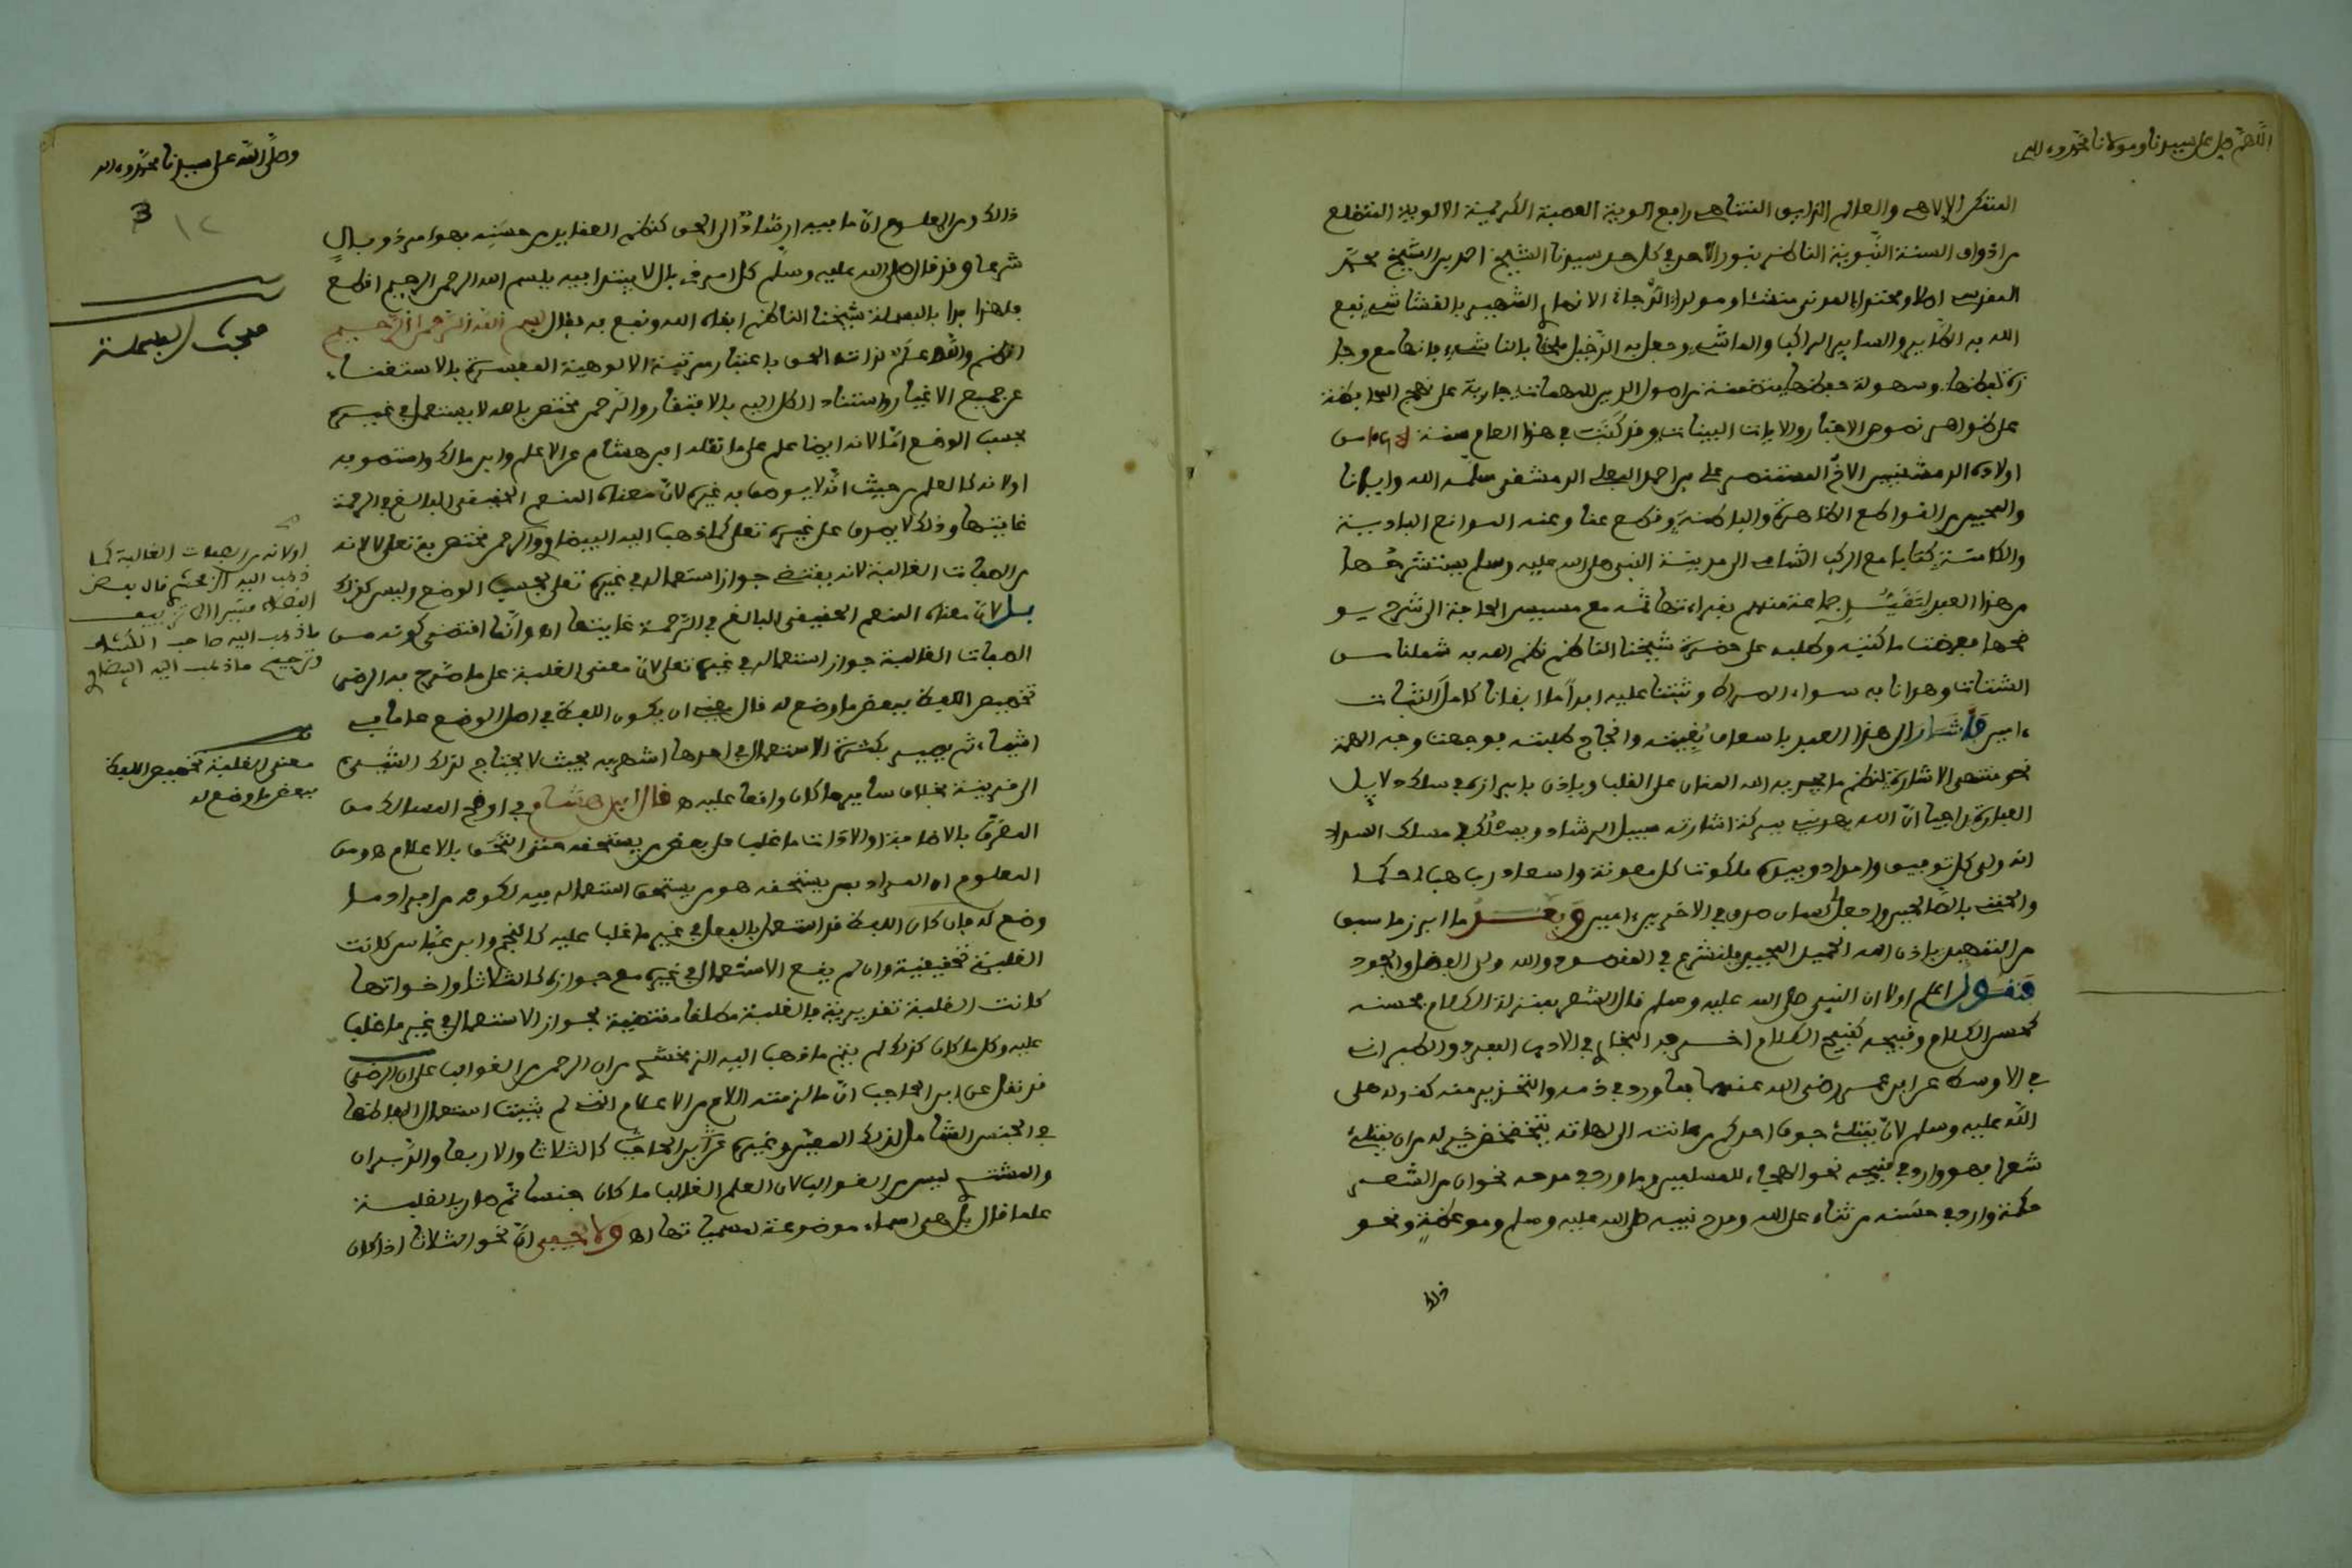 اللهم صل على سيدنا ومولانا محمد وءاله
المتفكر الإلاهي والعالم الرباني المتناهي رافع الوية العصبة الكريمية الالوية المتضلع
من اذواق السنة النبوية الناظم بنور الأحد في كل حد سيدنا الشيخ احمد بن الشيخ محمد
المغربي اصلا ومحتدا المدني منشئا ومولدا الأزهري الشهير بالقشاشي نفع
الله به الصادر والسائر الراكب والماشي وجعل به الرعيل ملحقا بالناشي فانها مع وجا
زة لفظها وسهولة حفظها متضمنة من اصول الدين للمهمات جارية على نهج المحافظة
على ظواهر نصوص الاخبار والايات البينات وقد كتبت في هذا العام سنة من
اولاده الدمشقيين الاخ المستنصر علي بن احمد البعلي الدمشقي سلمه الله وايانا
والمحبين من القواطع الظاهرة والباطنة وقطع عنا وعنه الموانع البادية
والكامنة كتابا مع الركب الشامي الى مدينة النبي صلى الله عليه وسلم يستشرحها
من هذا العبد لتقييد جماعة منهم بقراءتها ثمه مع مسيس الحاجة الى شرح يو
ضحها فعرضت ما كتبه وطلبه على حضرة شيخنا الناظم نظم الله به شملنا من
الشتات وهدانا به سواء الصراط وثبتنا عليه ابدا ما ابقانا كامل الثبات
ءامين فاشار الى هذا العبد باسعاف بغيته وانجاح طلبته فوجهت وجه الهمة
نحو مقتضى الاشارة لنظم ما يجريه الله المنان على القلب وياذن بابرازه في سلك دلايل
العبارة راجيا ان الله يهديني ببركة اشارته سبيل الرشاد ويسلك بي مسلك السداد
انه ولي كل توفيق وامداد وبيده ملكوت كل معونة واسعاد رب هب لي حكما
والحقني بالصالحين واجعل لي لسان صدق في الاخرين ءامين وبعد ما ابرز ما سبق
من التمهيد باذن الله الحميد المجيد فلنشرع في المقصود والله ولي الفضل والجود
فنقول اعلم اولا ان النبي صلى الله عليه وسلم قال الشعر بمنزلة الكلام فحسنه
كحسن الكلام وقبيحه كقبيح الكلام اخرجه البخاري في الادب المفرد والطبراني
في الاوسط عن ابن عمر رضي الله عنهما فما ورد في ذمه والتحذير منه كقوله صلى
الله عليه وسلم لان يمتلئ جوف احدكم من عانته الى لهاته يتخضخض خير له من ان يمتلئ
شعرا فهو وارد في قبيحه نحو الهجاء للمسلمين وما ورد في مدحه نحو ان من الشعر
حكمة وارد في حسنه من ثناء على الله ومدح نبيه صلى الله عليه وسلم وموعظة ونحو
ذالك
وصلى الله على سيدنا محمد وءاله
3
١٢
ذالك ومن المعلوم ان ما فيه ارشاد الى الحق كنظم العقايد من حسنه فهو امر ذو بال
شرعا وقد قال صلى الله عليه وسلم كل امر ذي بال لا يبتدا فيه ببسم الله الرحمن الرحيم اقطع
فلهذا بدا بالبسملة شيخنا الناظم ابقاه الله ونفع به فقال بسم الله الرحمن الرحيم
انظم والله علم لذات الحق باعتبار مرتبة الالوهية المفسرة بالاستغناء
عن جميع الاغيار واستناد الكل اليه بالافتقار والرحمن مختص بالله لا يستعمل في غيره
بحسب الوضع اما لانه ايضا علم على ما نقله ابن هشام عن الاعلم وابن مالك واستصوبه
او لانه كالعلم من حيث انه لا يوصف به غيره لان معناه المنعم الحقيقي البالغ في الرحمة
غايتها وذلك لا يصدق على غيره تعلى كما ذهب اليه البيضاوي والرحمن مختص به تعلى لا لانه
من الصفات الغالبة لانه يقتضي جواز استعماله في غيره تعلى بحسب الوضع وليس كذلك
بل لان معناه المنعم الحقيقي البالغ في الرحمة غايتها اه وانما اقتضى كونه من
الصفات الغالبة جواز استعماله في غيره تعلى لان معنى الغلبة على ما صرح به الرضي
تخصيص اللفظ ببعض ما وضع له قال يعني ان يكون اللفظ في اصل الوضع عاما في
اشياء ثم يصير بكثرة الاستعمال في احدها اشهر به بحيث لا يحتاج لذلك الشيء
الى قرينة بخلاف ساير ما كان واقعا عليه ه قال ابن هشام في اوضح المسالك من
المعرف بالاضافة او الاداة ما غلب على بعض من يستحقه حتى التحق بالاعلام ه ومن
المعلوم ان المراد بمن يستحقه هو من يستحق استعماله فيه لكونه من افراد ما
وضع له فان كان اللفظ قد استعمل بالفعل في غير ما غلب عليه كالنجم وابن عباس كانت
الغلبة تحقيقية وان لم يقع الاستعمال في غيره مع جوازه كالثلاثا واخواتها
كانت الغلبة تقديرية فالغلبة مطلقا مقتضية لجواز الاستعمال في غير ما غلب
عليه وكل ما كان كذلك لم يتم ما ذهب اليه الزمخشري من ان الرحمن من الغوالب على ان الرضي
قد نقل عن ابن الحاجب ان ما لزمته اللام من الاعلام التي لم يثبت استعمال الفاظها
في الجنس الشامل لذلك المعين وغيره كالثلاثا والاربعا والدبران
والمشتري ليس من الغوالب لان العلم الغالب ما كان جنسا ثم صار بالغلبة
علما قال بل هي اسماء موضوعة لمسمياتها اه ولا يخفى ان نحو الثلاثا اذا كان
مبحث البسملة
او لانه من الصفات الغالبة كما
ذهب اليه الزمخشري قال بعض
الفضلاء مشيرا الى تزييف
ما ذهب اليه صاحب الكشاف
وترجيح ما ذهب اليه البيضاوي
معنى الغلبة تخصيص اللفظ
ببعض ما وضع له